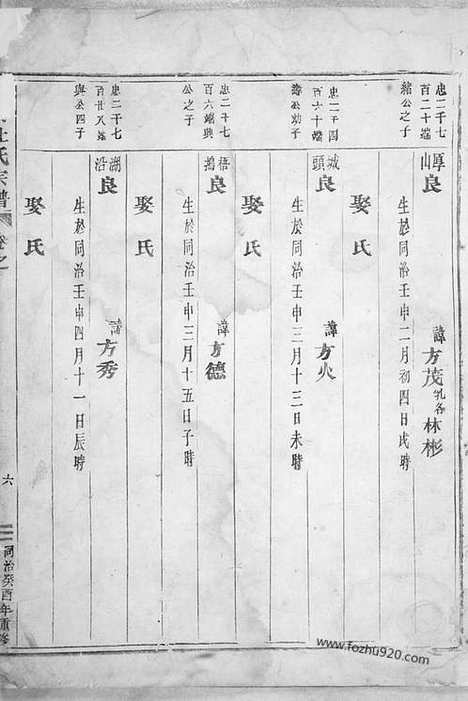 忠二千七
百二十端
緒公之子
厚山良
諱方茂乳名林彬
生於同治壬申二月初四日戌時
娶氏
忠二千四
百六十端
公幼子
城頭良
諱方火
生於同治壬申三月十三日未時
娶氏
忠二千七
百六端典
公之子
梧良
諱方德
生於同治壬申三月十五日子時
娶氏
忠二千七
百廿八端
與公四子
湖沿良
諱方秀
生於同治壬申四月十一日辰時
娶氏
氏宗譜
卷之
六
同治癸酉年重修
www.fozhu920.com